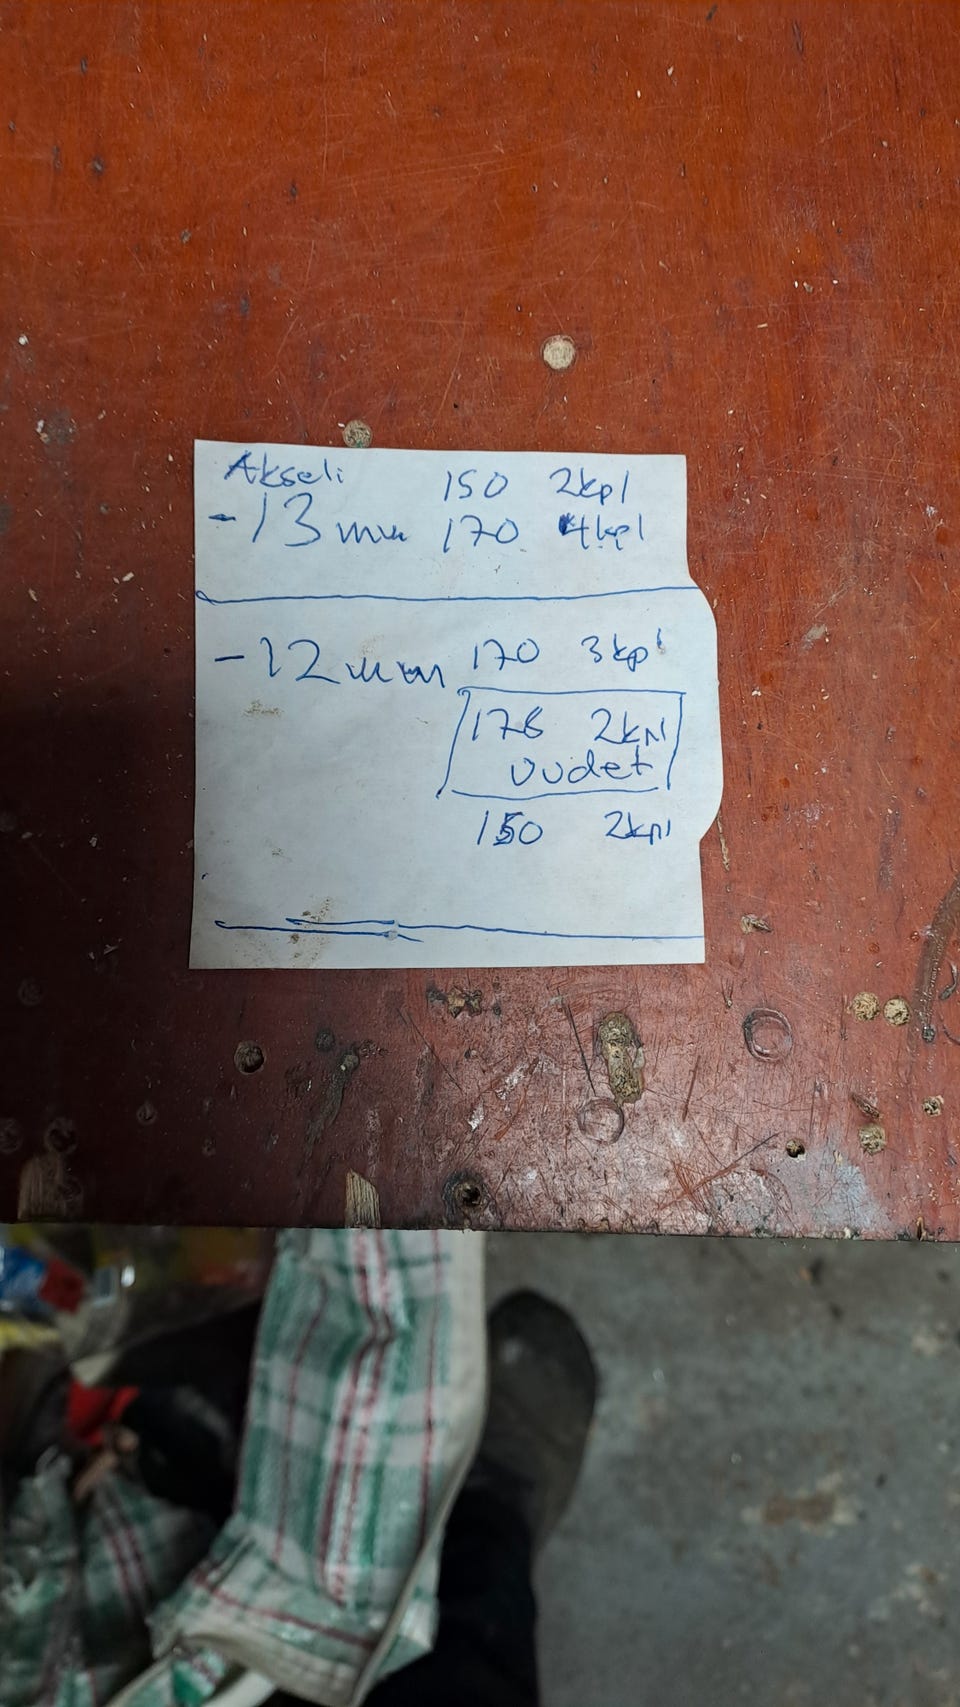 Akseli 150 2kpl
-13 mm 170 4kpl
-12 mm 170 3kpl
178 2kpl
uudet
150 2kpl